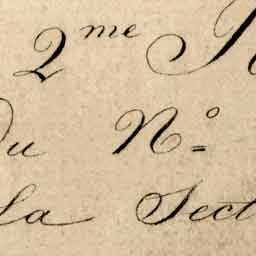 2me
Du Nº
La Sect